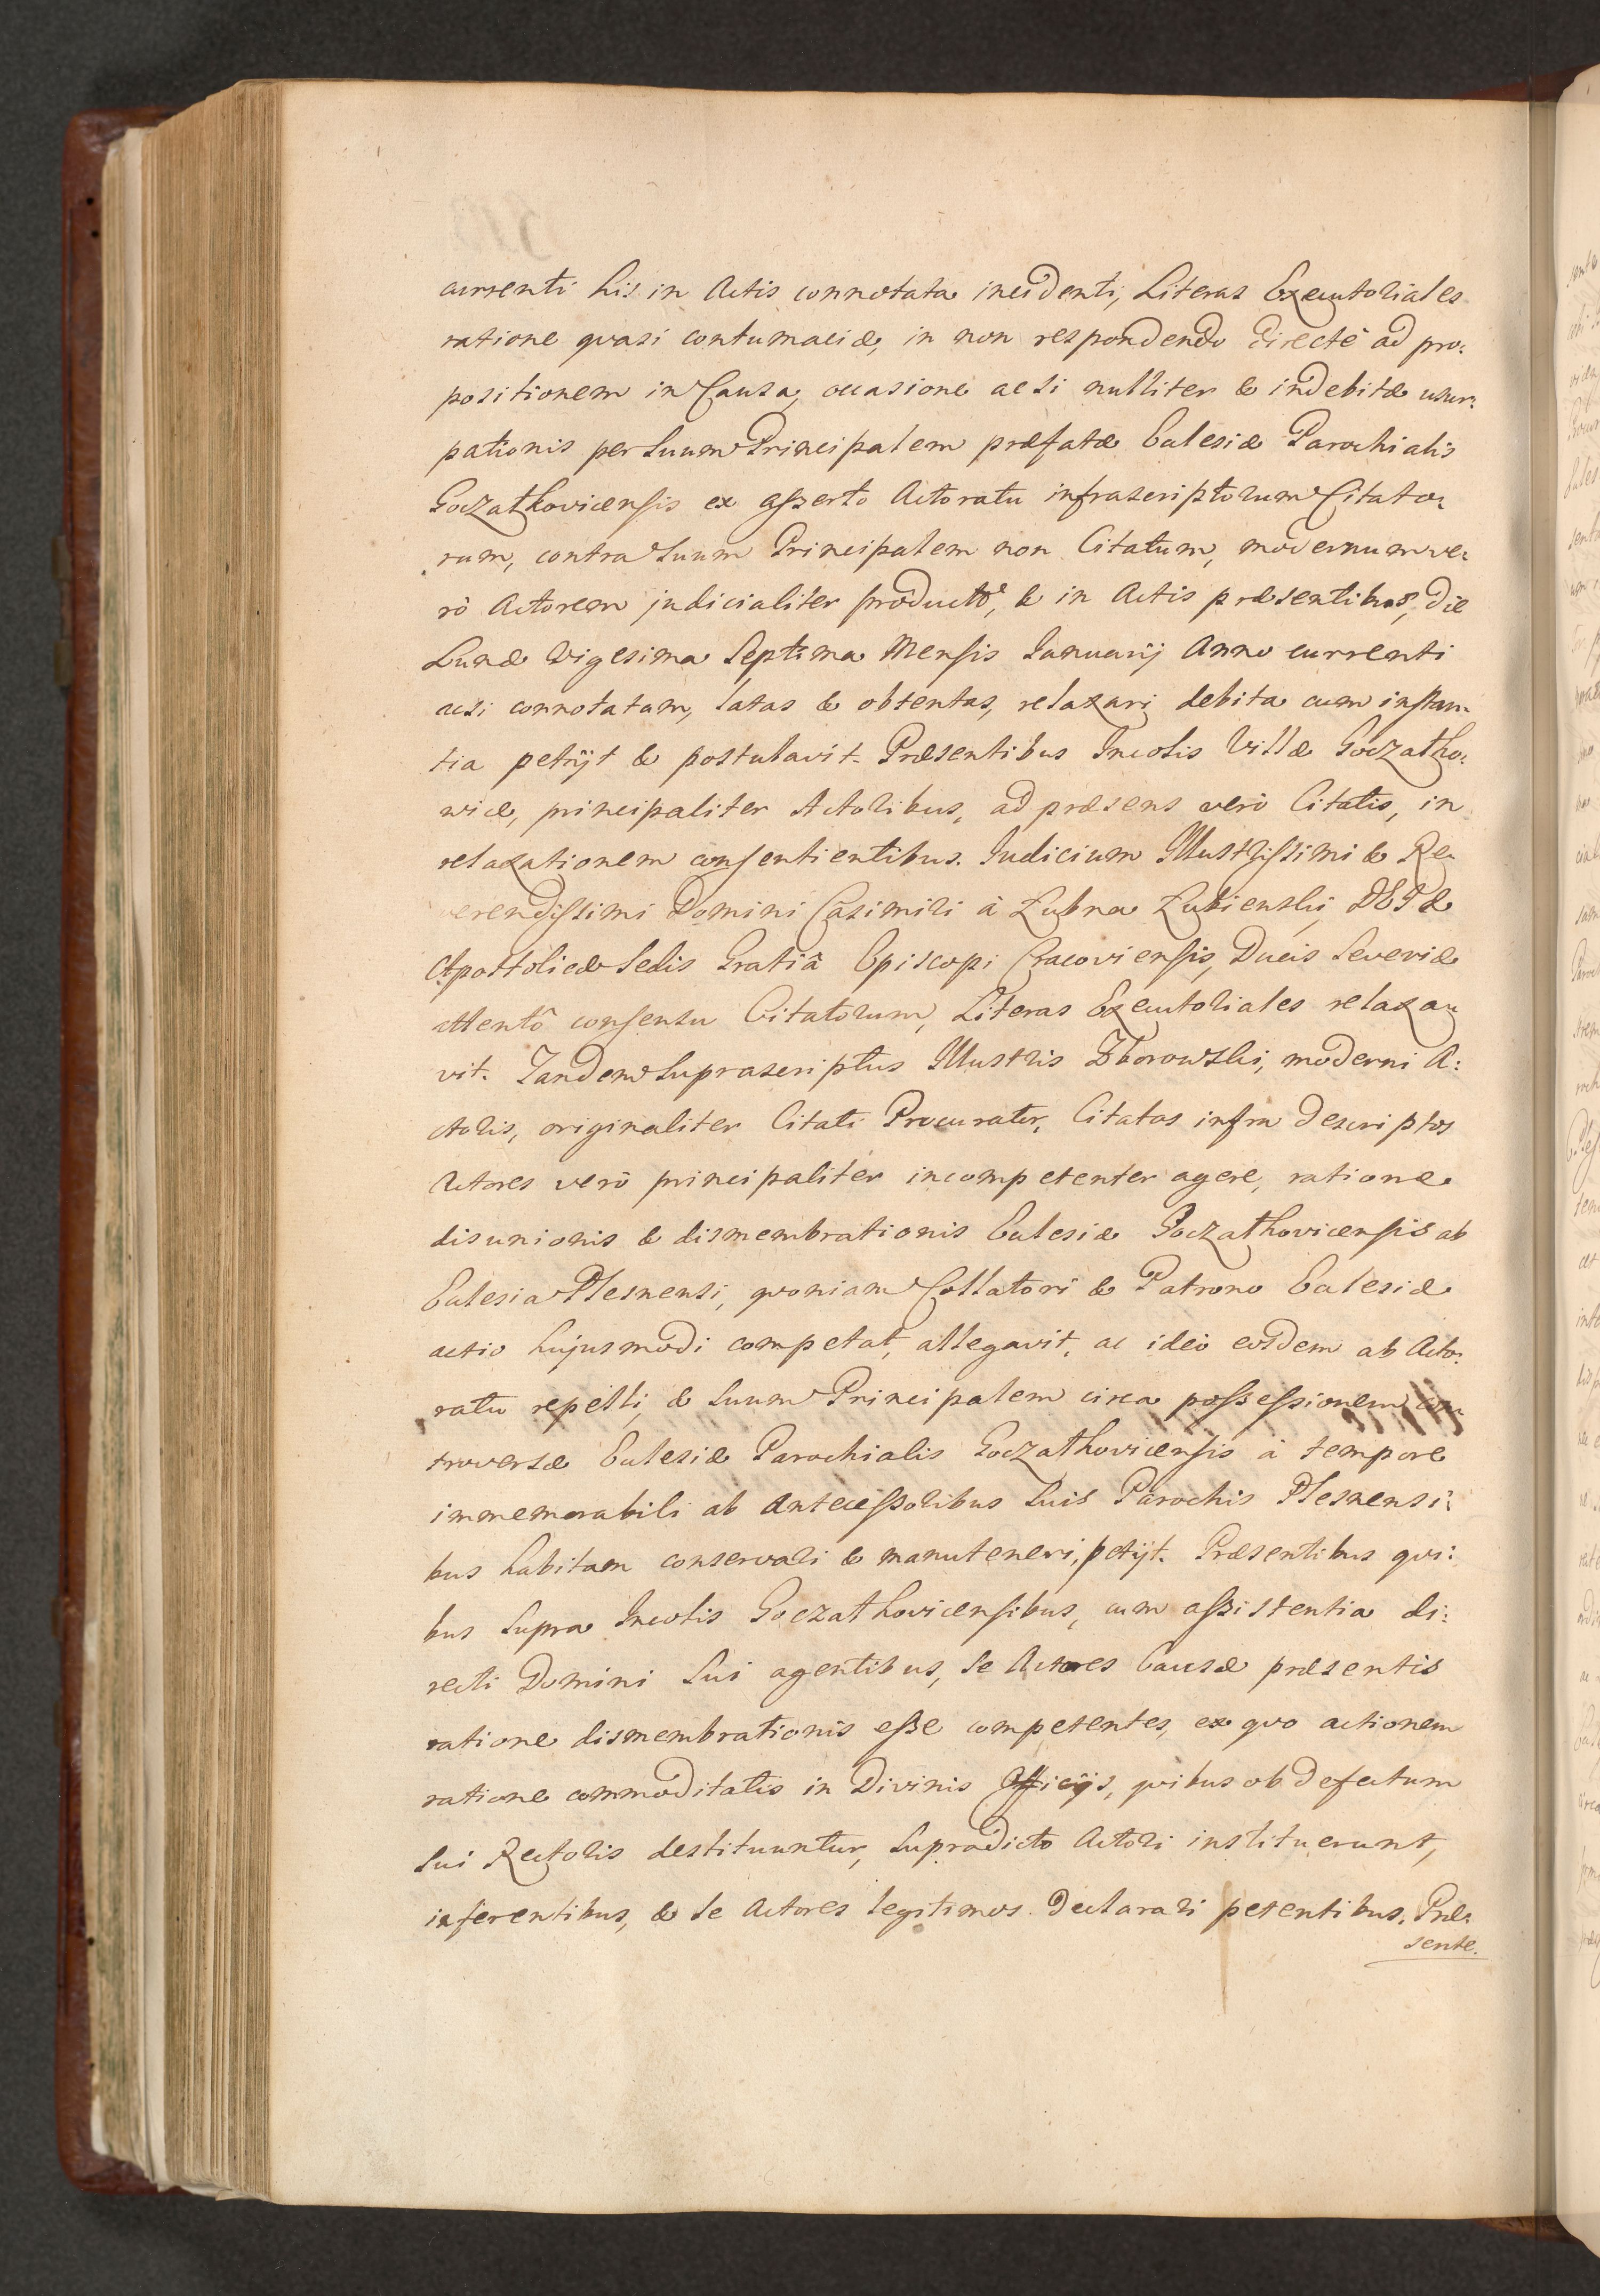 currenti his in Actis connotata incidenti, Literas Executoriales
ratione quasi contumaciæ, in non respondendo directè ad pro:
positionem in Causa, occasione acsi nulliter & indebitæ usur:
pationis per Suum Principalem præfatæ Ecclesiæ Parochialis
Goczalkovicensis ex asserto Actoratu infrascriptorum Citato:
rum, contra Suum Principalem non Citatum, modernum ve:
rò Actorem judicialiter productô, & in Actis præsentibus, die
Lunæ Vigesima Septima Mensis Januarij Anno currenti
acsi connotatam, latas & obtentas, relaxari debita cum instan:
tia petijt & postulavit. Præsentibus Incolis Villæ Goczalko:
wice, principaliter Actoribus, ad præsens verò Citatis, in
relaxationem consentientibus. Judicium Illustrissimi & Re:
verendissimi Domini Casimiri à Łubna Łubienski, DEI &
Apostolicæ Sedis Gratiâ Episcopi Cracoviensis, Ducis Severiæ
attentô consensu Citatorum, Literas Executoriales relaxa:
vit. Tandem Suprascriptus Illustris Zborowski, moderni A:
ctoris, originaliter Citati Procurator, Citatos infra descriptos
Actores verò principaliter incompetenter agere, ratione
disunionis & dismembrationis Ecclesiæ Goczalkovicensis ab
Ecclesia Plesnensi, quoniam Collatori & Patrono Ecclesiæ
actio hujusmodi competat, allegavit, ac ideò eosdem ab Acto:
ratu repelli, & Suum Principalem circa possessionem con:
troversæ Ecclesiæ Parochialis Goczalkovicensis à tempore
immemorabili ab Antecessoribus Suis Parochis Plesnensi:
bus habitam conservari & manuteneri, petijt. Præsentibus qui:
bus Supra Incolis Goczalkovicensibus, cum assistentia di:
recti Domini Sui agentibus, Se Actores Causæ præsentis
ratione dismembrationis esse competentes, ex quo actionem
ratione commoditatis in Divinis Officijs, quibus ob defectum
Sui Rectoris destituuntur, Supradicto Actori instituerunt,
inferentibus, & Se Actores legitimos declarari petentibus. Præ:
sente.